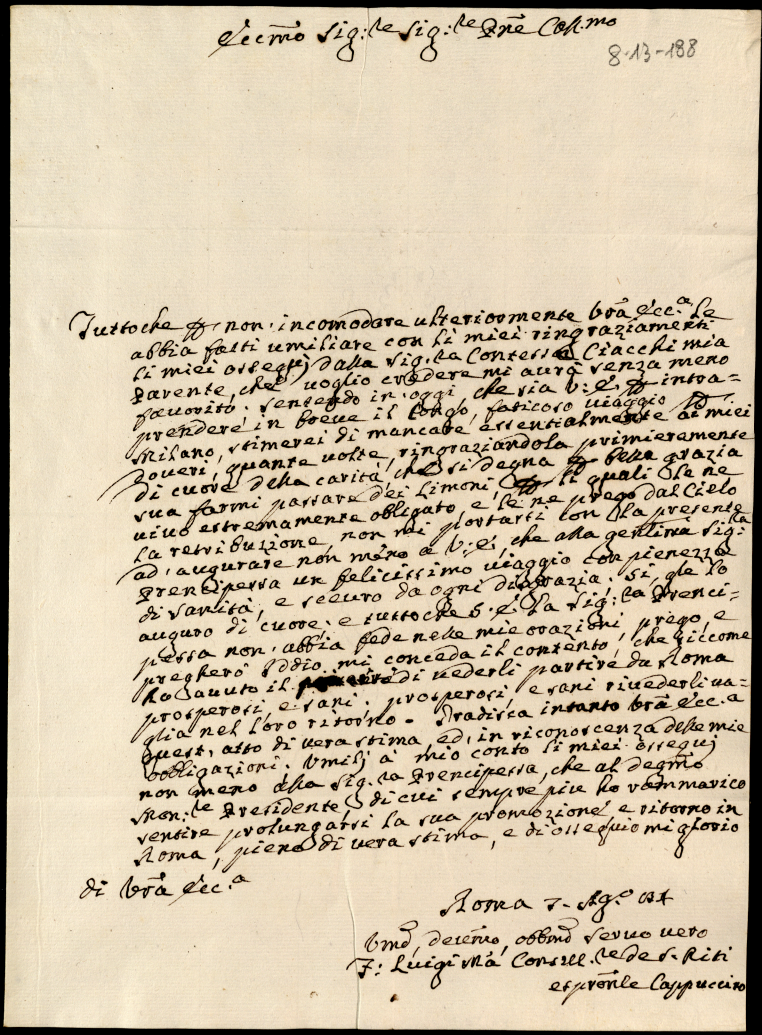 Eccmo Sig:re Sig:re Prñe Coll.mo
8-13-188
Tuttoche non incomodare ulteriormente Vrã Ecc.a Le
abbia fatti umiliare con li miei ringraziamenti
li miei ossequj dalla Sig.ra Contessa Ciacchi mia
Parente, che voglio credere mi aurà senza meno
fauorito; sentendo in oggi che sia V: E. intra=
prendere in breve il longo, faticoso viaggio
Milano, stimerei di mancare essentialmente ai miei
doueri, quante volte, ringraziandola primieramente
di cuore della carità, che si degna della grazia
sua farmi passare dei Limoni, li quali Le ne
uiuo estremamente obligato, e le ne prego dal Cielo
la retribuzione, non mi portassi con la presente
ad augurare non meno a V: E, che alla gentilma Sig:ra
Prencipessa un felicissimo uiaggio con pienezza
di sanità, e sceuro da ogni disgrazia. Si, gle lo
auguro di cuore: e tuttoche S. E. la Sig:ra Prenci=
pessa non abbia fede nelle mie orazioni, prego, e
pregherò Iddio mi conceda il contento, che siccome
ho auuto il di uederli partire da Roma
prosperosi, e sani; prosperosi, e sani riuederli ua=
glia nel loro ritorno. Gradisca intanto Vrã Ecc.a
quest'atto di uera stima ed in riconoscenza delle mie
obbligazioni. Umilj a mio conto li miei ossequj
non meno alla Sig.ra Prencipessa, che al degmo
Mon:re Presidente, di cui sempre piu ho rammarico
sentire prolungarsi la sua promozione, e ritorno in
Roma, pieno di uera stima, e di ossequio mi glorio
di Vrã Ecc.a
Roma 7. Ag.o
Vmo, deumo, obbmo seruo uero
F: Luigi Mã de S. Riti
Cappuccino